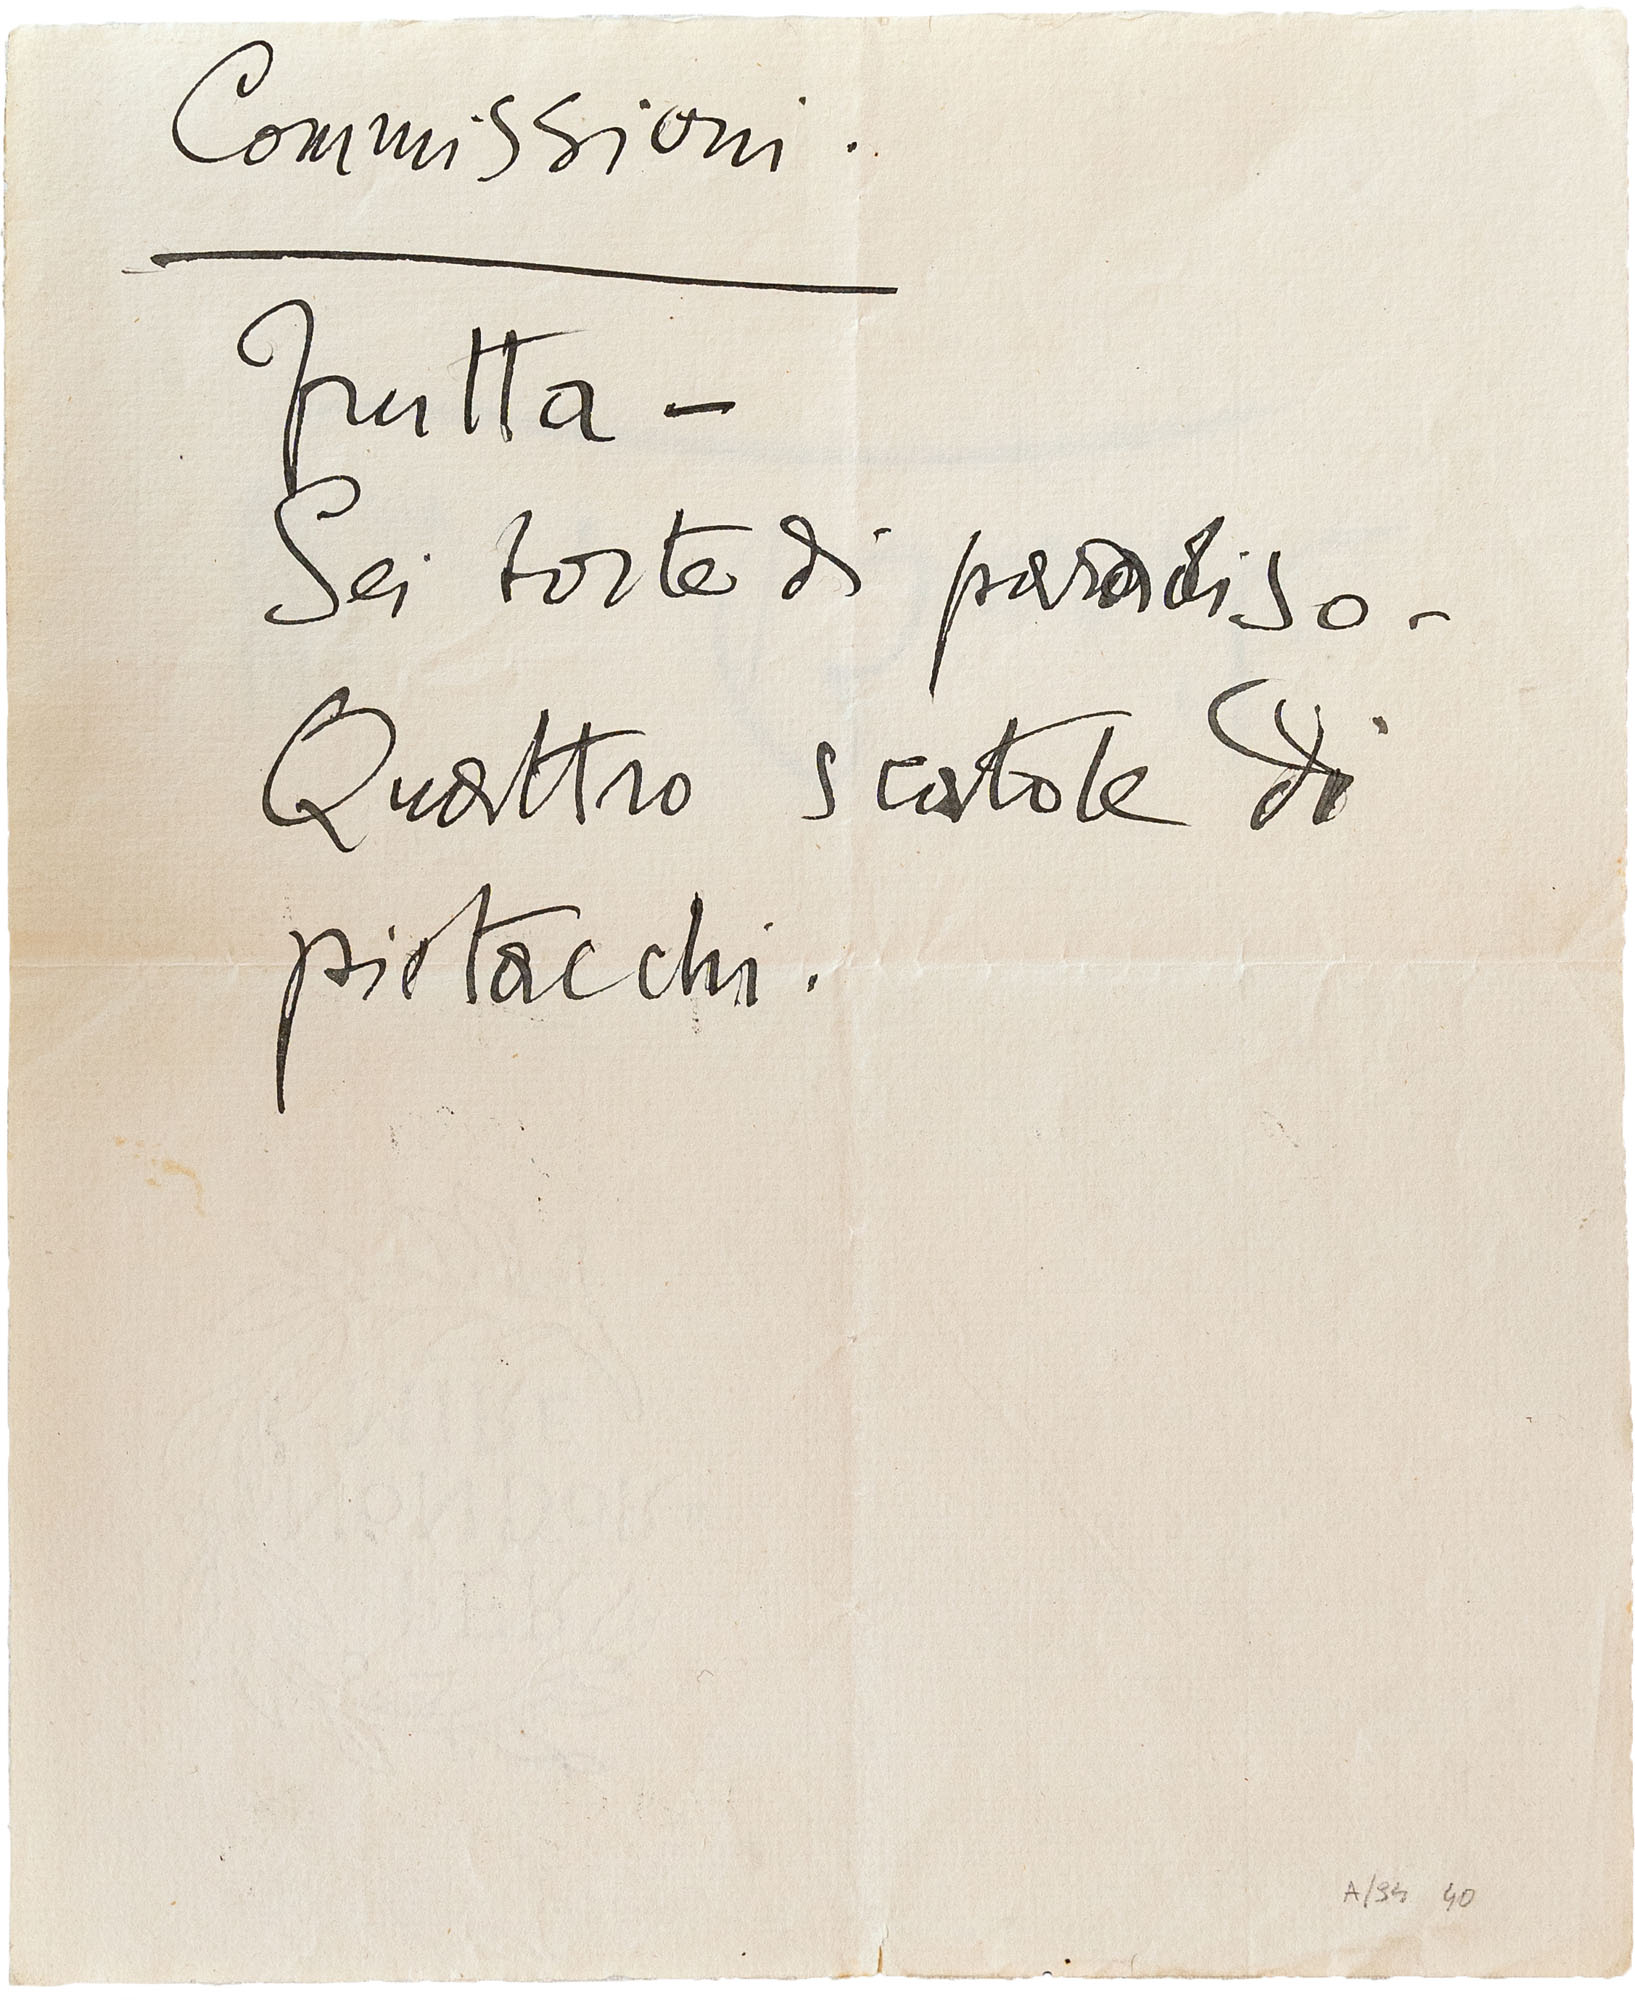 Commissioni.
frutta –
Sei torte di paradiso –
Quattro scatole di
pistacchi.
40